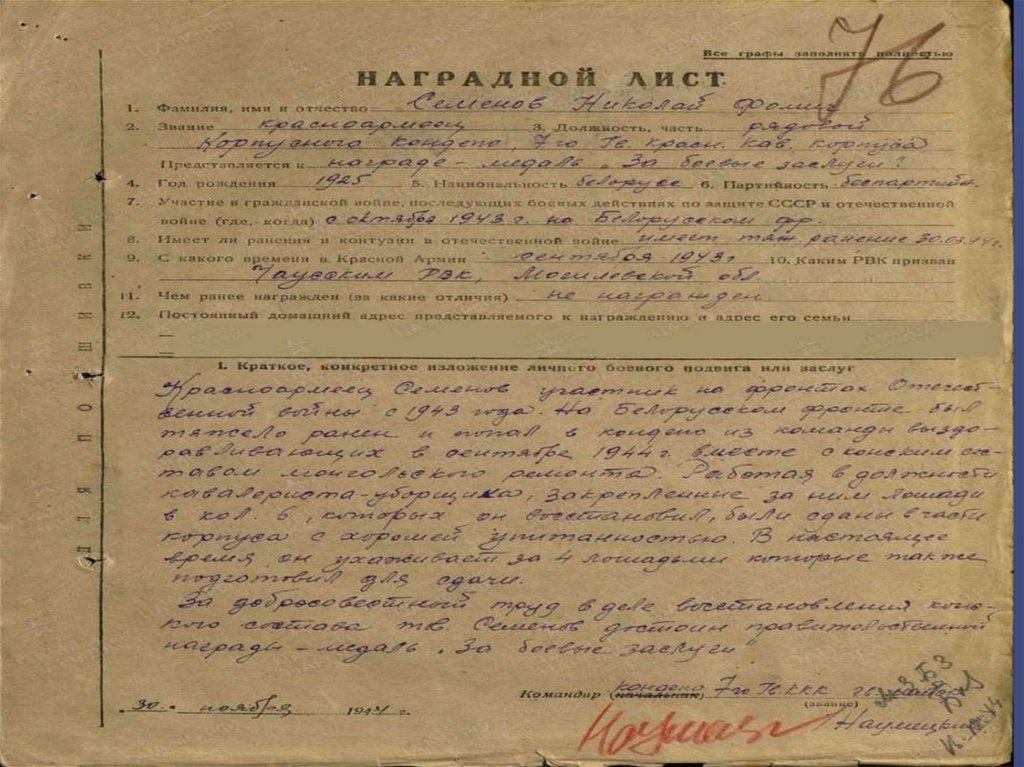 76
Все графы заполнять полностью
НАГРАДНОЙ ЛИСТ
1. Фамилия, имя и отчество Семенов Николай Фомич
2. Звание красноармеец 3. Должность, часть рядовой
Корпусного кондепо, 7го Гв. красн. кав. корпуса
Представляется к награде - медаль „За боевые заслуги"
4. Год рождения 1925 5. Национальность белорусс 6. Партийность беспартийн.
7. Участие в гражданской войне, последующих боевых действиях по защите СССР и отечественной
войне (где, когда) с октября 1943 г. на Белорусском фр.
8. Имеет ли ранения и контузии в отечественной войне имеет тяж. ранение 30.03.44 г.
9. С какого времени в Красной Армии сентября 1943 г 10. Каким РВК призван
Чаусским РВК, Могилевской обл.
11. Чем ранее награжден (за какие отличия) не награжден
12. Постоянный домашний адрес представляемого к награждению и адрес его семьи
ДЛЯ ПОДШИВКИ
I. Краткое, конкретное изложение личного боевого подвига или заслуг
Красноармеец Семенов участник на фронтах Отечест-
венной войны с 1943 года. На Белорусском фронте был
тяжело ранен и попал в кондепо из команды выздо-
равливающих в сентябре 1944 г. вместе с конским сос-
тавам монгольского ремонта. Работая в должности
кавалериста-уборщика, закрепленные за ним лошади
в кол. 6, которых он восстановил, были сданы в части
корпуса с хорошей упитанностью. В настоящее
время он ухаживает за 4 лошадьми которые также
подготовил для сдачи.
За добросовестный труд в деле восстановления конс-
кого состава тов. Семенов достоин правительственной
награды - медаль „За боевые заслуги"
Командир (начальник) кондепо 7го Гв.ККК гв.
(звание)
„30" ноября 1944 г.